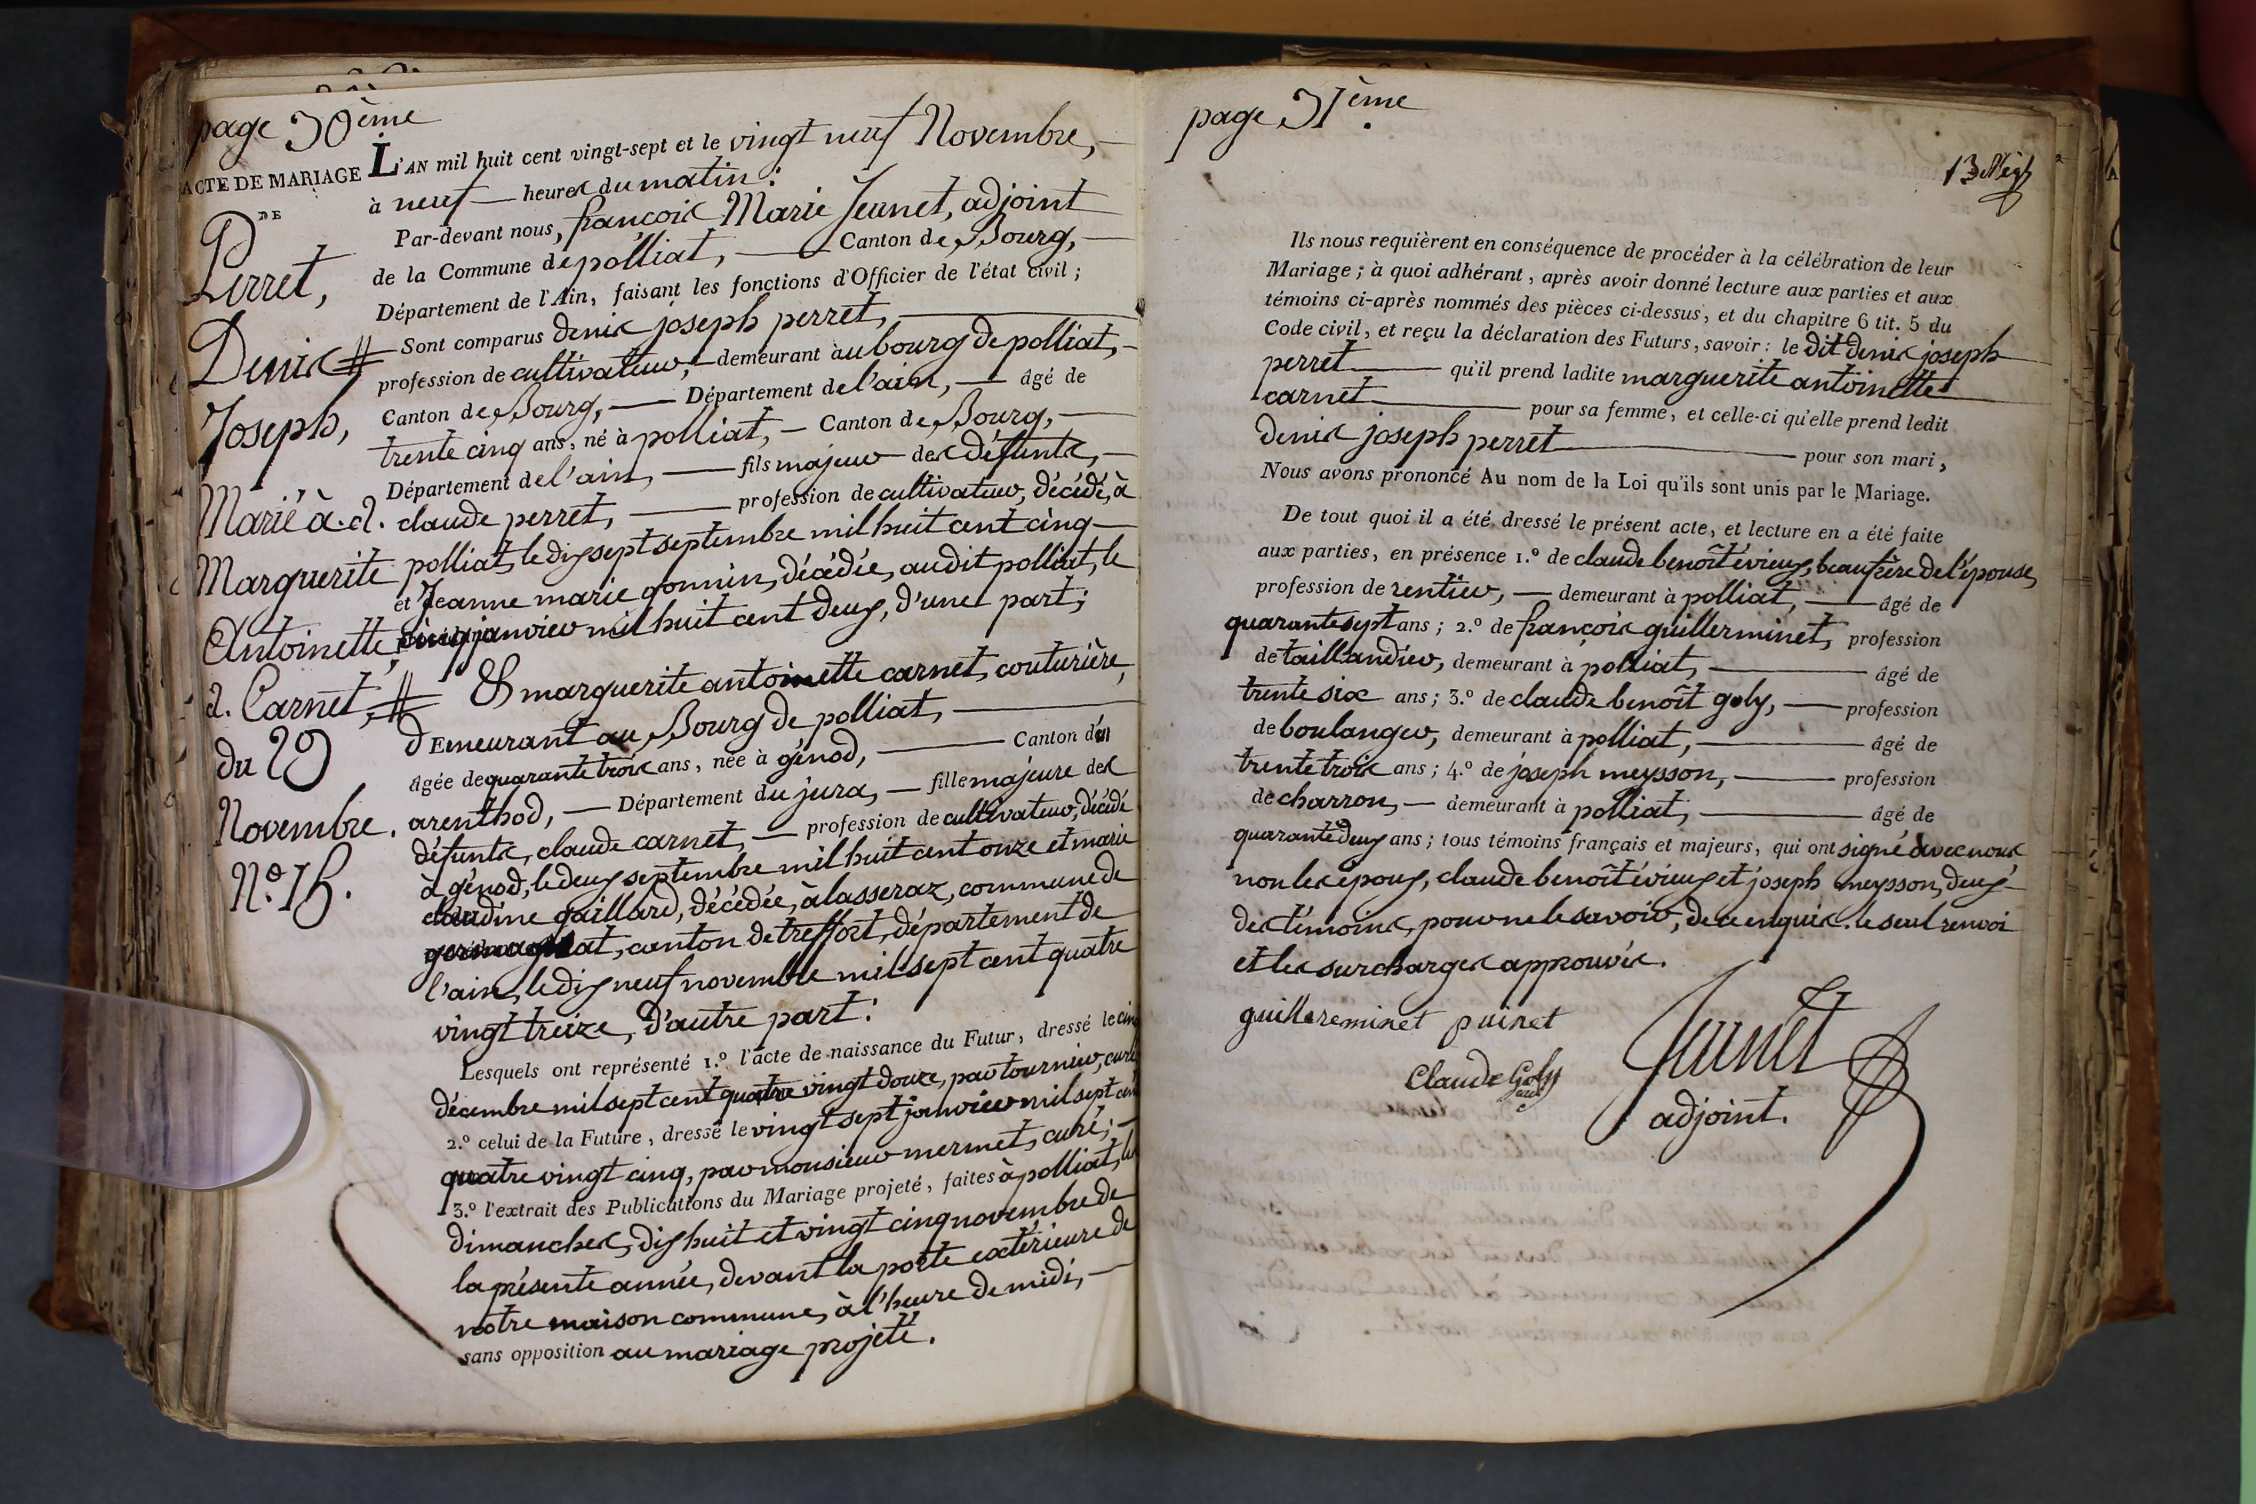 page 30ème
ACTE DE MARIAGE
DE
Perret,
Denis #
Joseph,
Marié à. d.
Marguerite
Antoinette,
d. Carnet, #
du 29
Novembre.
N.º 15.
L'AN mil huit cent vingt-sept et le vingt neuf Novembre,
à neuf heures du matin :
Par-devant nous, françois Marie Jeunet, adjoint
de la Commune de polliat, Canton de Bourg,
Département de l'Ain, faisant les fonctions d'Officier de l'état civil ;
Sont comparus denis joseph perret,
profession de cultivateur, demeurant au bourg de polliat,
Canton de Bourg, Département de l'ain, âgé de
trente cinq ans, né à polliat, Canton de Bourg,
Département de l'ain, fils majeur des défunts,
claude perret, profession de cultivateur, décédé, à
polliat, le dix sept septembre mil huit cent cinq
et Jeanne marie gonnin, décédée, audit polliat, le
cinq janvier mil huit cent deux, d'une part ;
Et marguerite antoinette carnet, couturière,
dEmeurant au Bourg de polliat,
âgée de quarante trois ans, née à génod, Canton d'
arenthod, Département du jura, fille majeure des
défunts, claude carnet, profession de cultivateur, décédé
à génod, le deux septembre mil huit cent onze et marie
claudine gaillard, décédée, à lasseraz, commune de
germagnat, canton de treffort, département de
l'ain, le dix neuf novembre mil sept cent quatre
vingt treize, d'autre part :
Lesquels ont représenté 1.º l'acte de naissance du Futur, dressé le cinq
décembre mil sept cent quatre vingt douze, par tournier, curé
2.º celui de la Future, dressé le vingt sept janvier mil sept cent
quatre vingt cinq, par monsieur mermet, curé ;
3.º l'extrait des Publications du Mariage projeté, faites à polliat, les
dimanches, dix huit et vingt cinq novembre de
la présente année, devant la porte extérieure de
notre maison commune, à l'heure de midi,
sans opposition au mariage projeté.
page 31ème
Ils nous requièrent en conséquence de procéder à la célébration de leur
Mariage ; à quoi adhérant, après avoir donné lecture aux parties et aux
témoins ci-après nommés des pièces ci-dessus, et du chapitre 6 tit. 5 du
Code civil, et reçu la déclaration des Futurs, savoir : le dit denis joseph
perret qu'il prend ladite marguerite antoinette
carnet pour sa femme, et celle-ci qu'elle prend ledit
denis joseph perret pour son mari,
Nous avons prononcé Au nom de la Loi qu'ils sont unis par le Mariage.
De tout quoi il a été dressé le présent acte, et lecture en a été faite
aux parties, en présence 1.º de claude benoît évieux, beaufrère de l'épouse,
profession de rentier, demeurant à polliat, âgé de
quarante sept ans ; 2.º de françois guillerminet, profession
de taillandier, demeurant à polliat, âgé de
trente six ans ; 3.º de claude benoît goly, profession
de boulanger, demeurant à polliat, âgé de
trente trois ans ; 4.º de joseph meysson, profession
de charron, demeurant à polliat, âgé de
quarante deux ans ; tous témoins français et majeurs, qui ont signé avec nous
non les époux, claude benoît évieux et joseph meysson, deux
des témoins, pour ne le savoir, de ce enquis. le seul renvoi
et les surcharges approuvés.
guillereminet puinet
Claude Goly
Jeunet
adjoint.